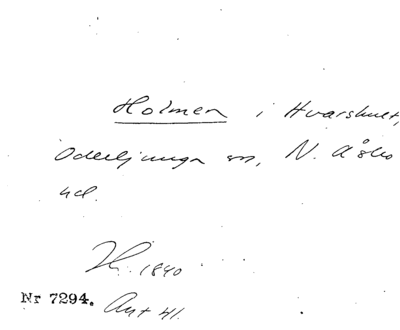 Holmen i Hvarshult,
Oderljunga sn, N. Åsbo
hd.
1840
Nr 7294. Ant 41.